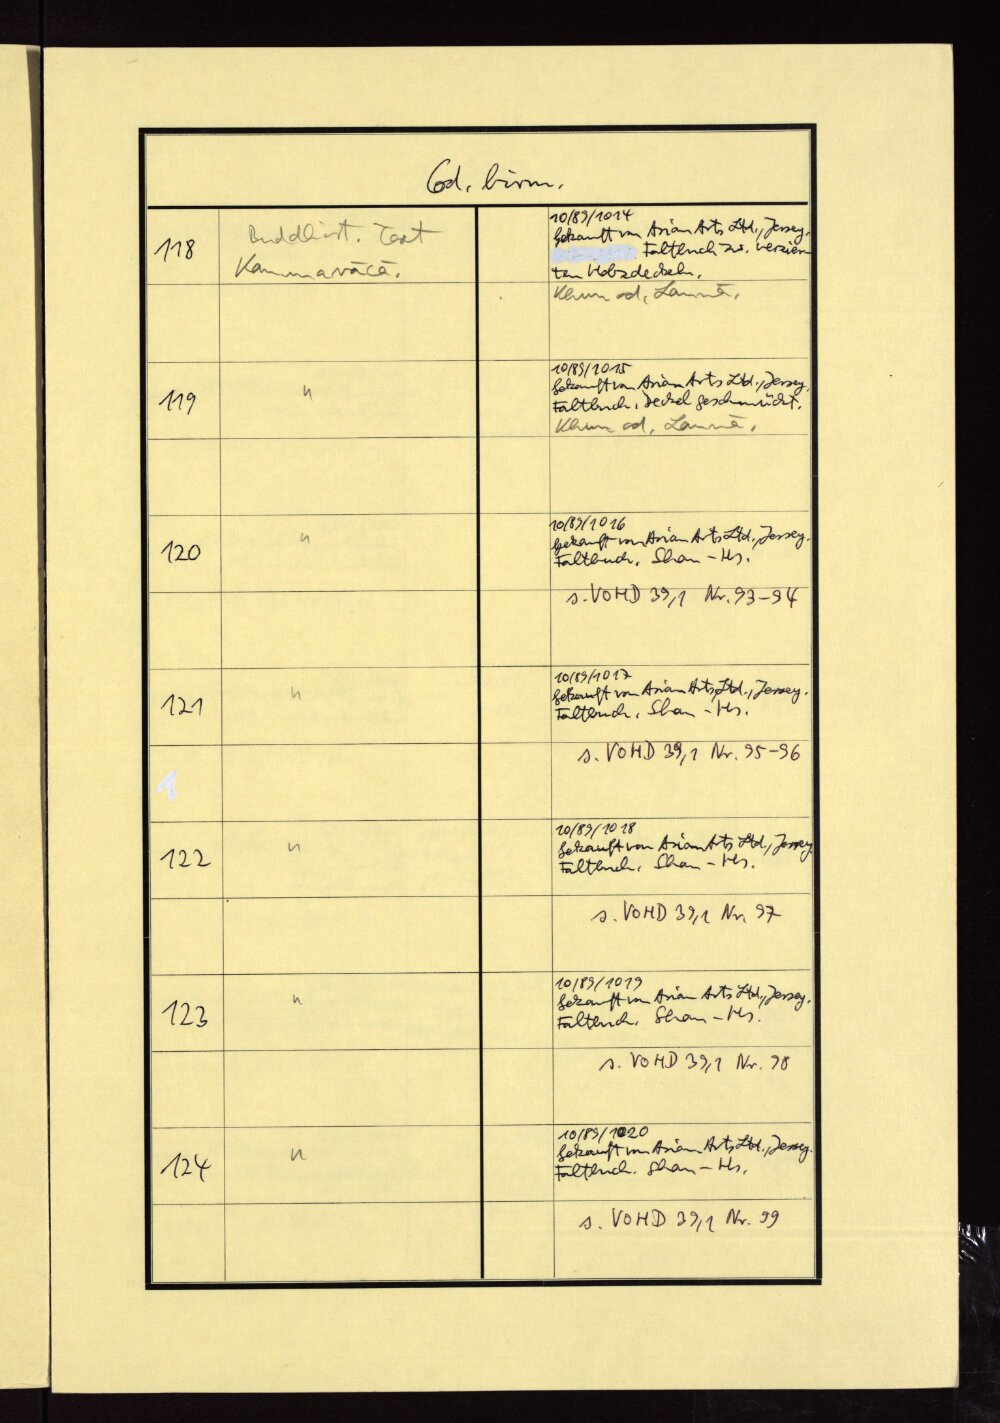 Cod. birm.
118
Buddhist. Text
Kammavācā.
10/89/1014
Gekauft von Asian Arts Ltd., Jersey.
Faltbuch zw. verzier-
ten Holzdeckeln.
Khün od. Lannā.
119
"
10/89/1015
Gekauft von Asian Arts Ltd., Jersey.
Faltbuch, Deckel geschmückt.
Khün od. Lannā.
120
"
10/89/1016
Gekauft von Asian Arts Ltd., Jersey.
Faltbuch. Shan-Hs.
s. VOHD 39,1 Nr. 93-94
121
"
10/89/1017
Gekauft von Asian Arts Ltd., Jersey.
Faltbuch. Shan-Hs.
s. VOHD 39,1 Nr. 95-96
1
122
"
10/89/1018
Gekauft von Asian Arts Ltd., Jersey
Faltbuch. Shan-Hs.
s. VOHD 39,1 Nr. 97
123
"
10/89/1019
Gekauft von Asian Arts Ltd., Jersey.
Faltbuch. Shan-Hs.
s. VOHD 39,1 Nr. 98
124
"
10/89/1020
Gekauft von Asian Arts Ltd., Jersey.
Faltbuch. Shan-Hs.
s. VOHD 39,1 Nr. 99